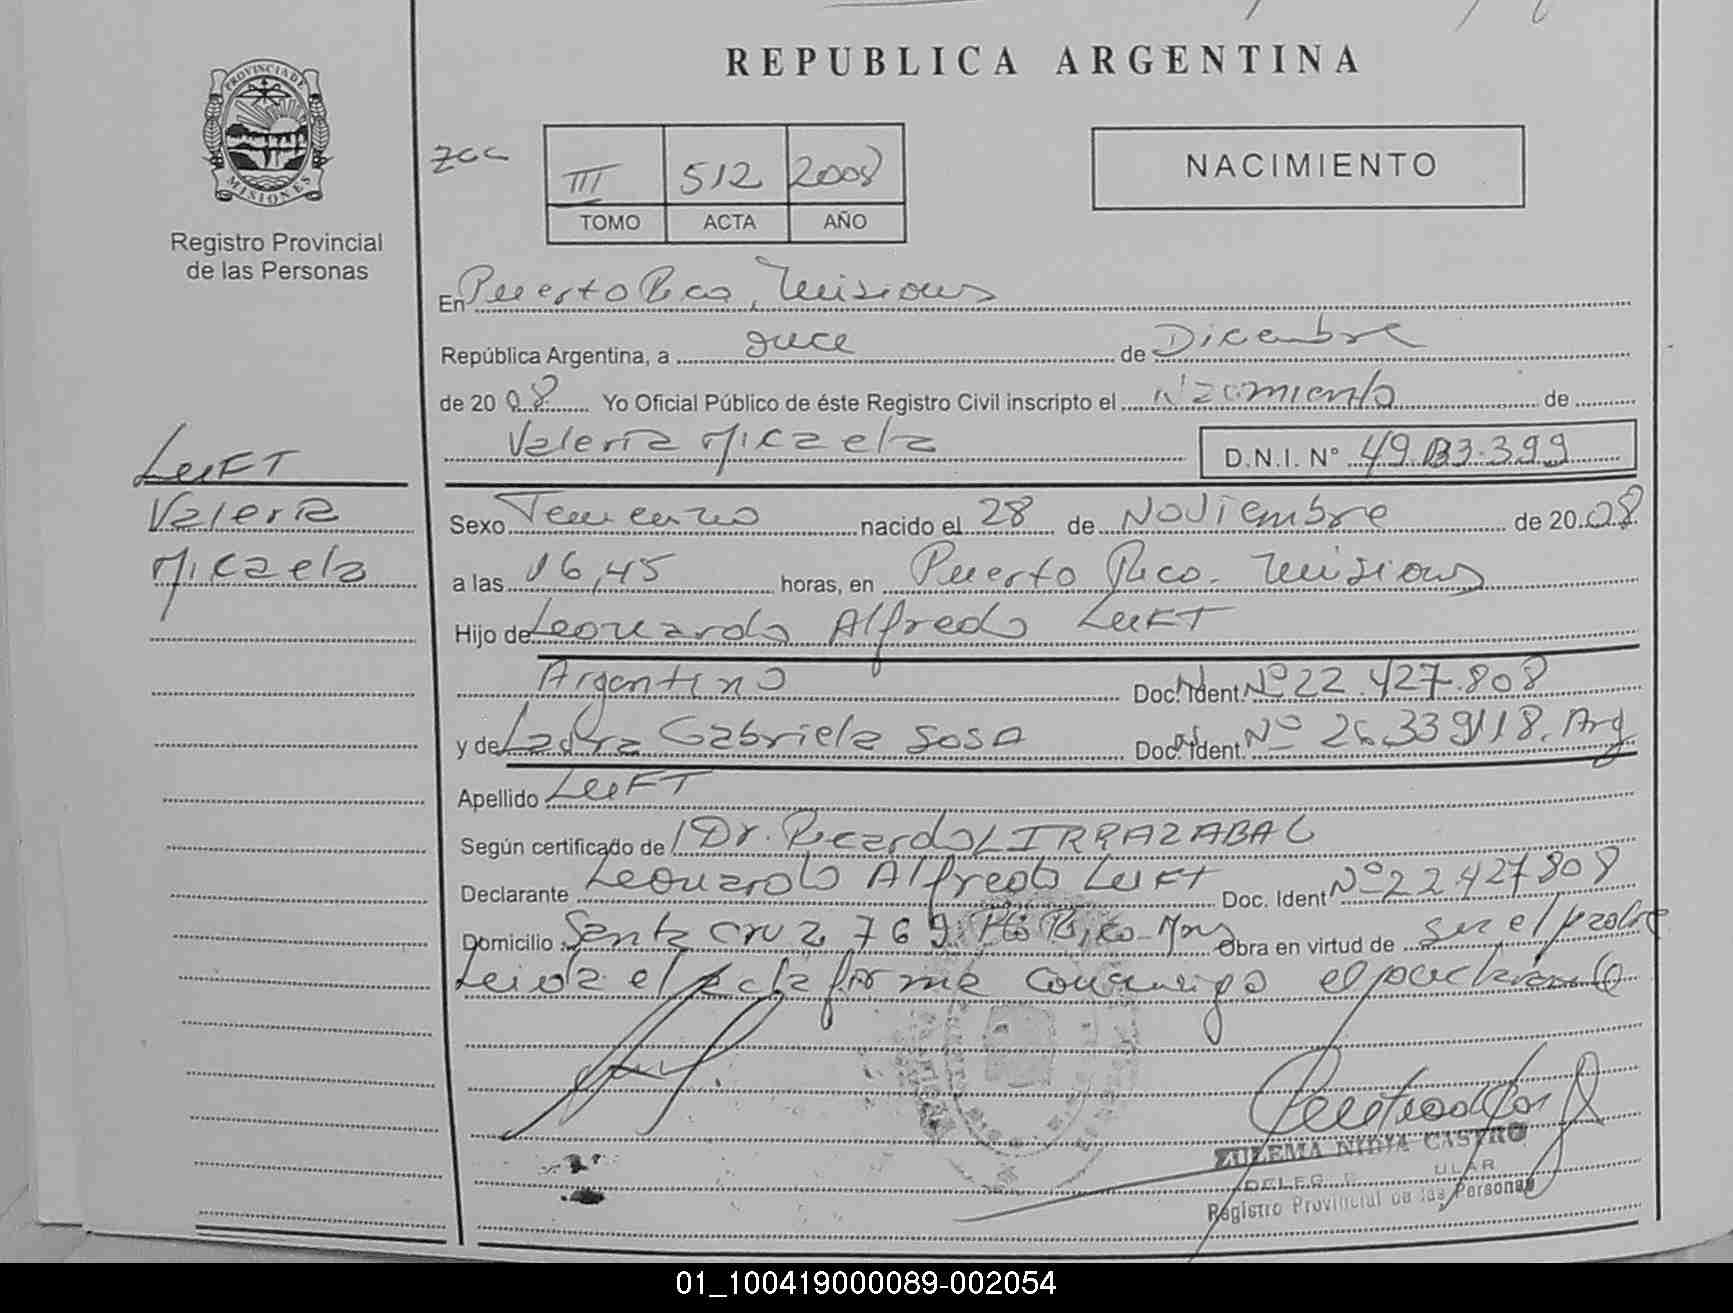 REPUBLICA ARGENTINA
PROVINCIA DE MISIONES
Registro Provincial
de las Personas
III 512 2008
TOMO ACTA AÑO
NACIMIENTO
En Puerto Rico, Misiones
República Argentina, a once de Diciembre
de 20 08 Yo Oficial Público de éste Registro Civil inscripto el Nacimiento de
Valeria Micaela D.N.I. N° 49.133.399
LUFT
Valeria
Micaela
Sexo Femenino nacido el 28 de Noviembre de 20 08
a las 16,45 horas, en Puerto Rico. Misiones
Hijo de Leonardo Alfredo LUFT
Argentino Doc. Ident. Nº 22.427.808
y de Laura Gabriela SOSA Doc. Ident. Nº 26.339118. Arg
Apellido LUFT
Según certificado de Dr. Ricardo L IRRAZABAL
Declarante Leonardo Alfredo LUFT Doc. Ident Nº 22.427808
Domicilio: Santa Cruz 769 Pto Rico - Mns Obra en virtud de ser el padre
Leida el acta firma conmigo el declarante
ZULEMA NIDIA CASTRO
Registro Provincial de las Personas
01_100419000089-002054